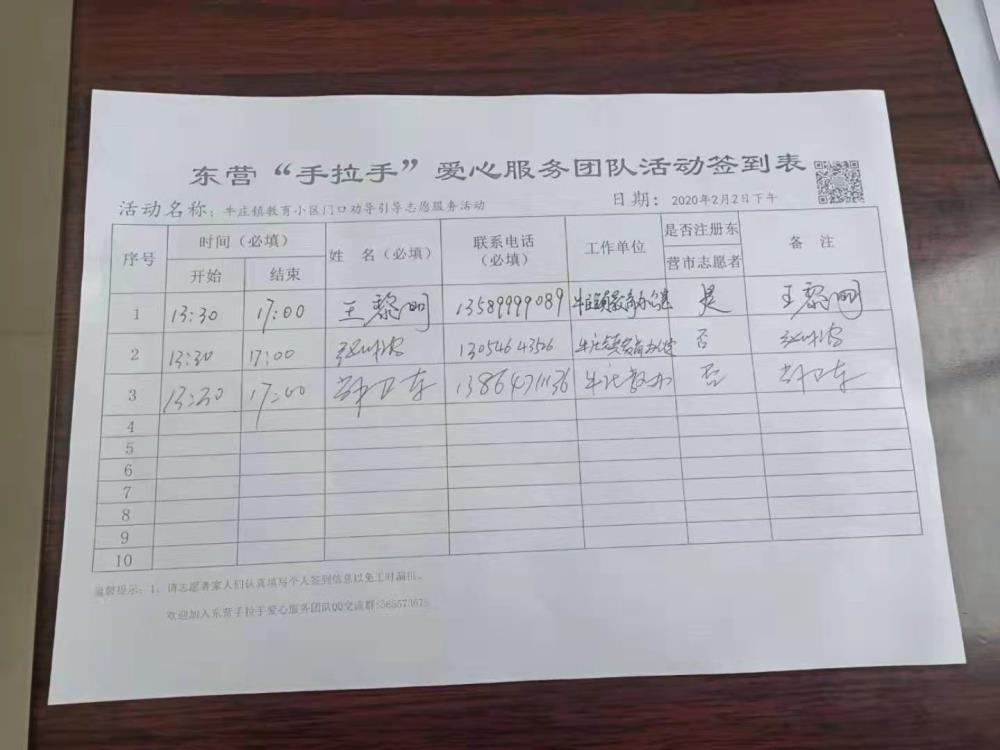 东营“手拉手”爱心服务团队活动签到表
活动名称：牛庄镇教育小区门口劝导引导志愿服务活动 日期：2020年2月2日下午
序号 时间（必填） 姓 名（必填） 联系电话（必填） 工作单位 是否注册东营市志愿者 备 注
开始 结束
1 13:30 17:00 王黎明 13589999089 牛庄镇教育办公室 是 王黎明
2 13:30 17:00 13054643526 牛庄镇教育办公室 否
3 13:30 17:00 13864711136 牛庄教办 否
4
5
6
7
8
9
10
温馨提示：1、请志愿者家人们认真填写个人签到信息以免工时漏报。
欢迎加入东营手拉手爱心服务团队QQ交流群:565573675